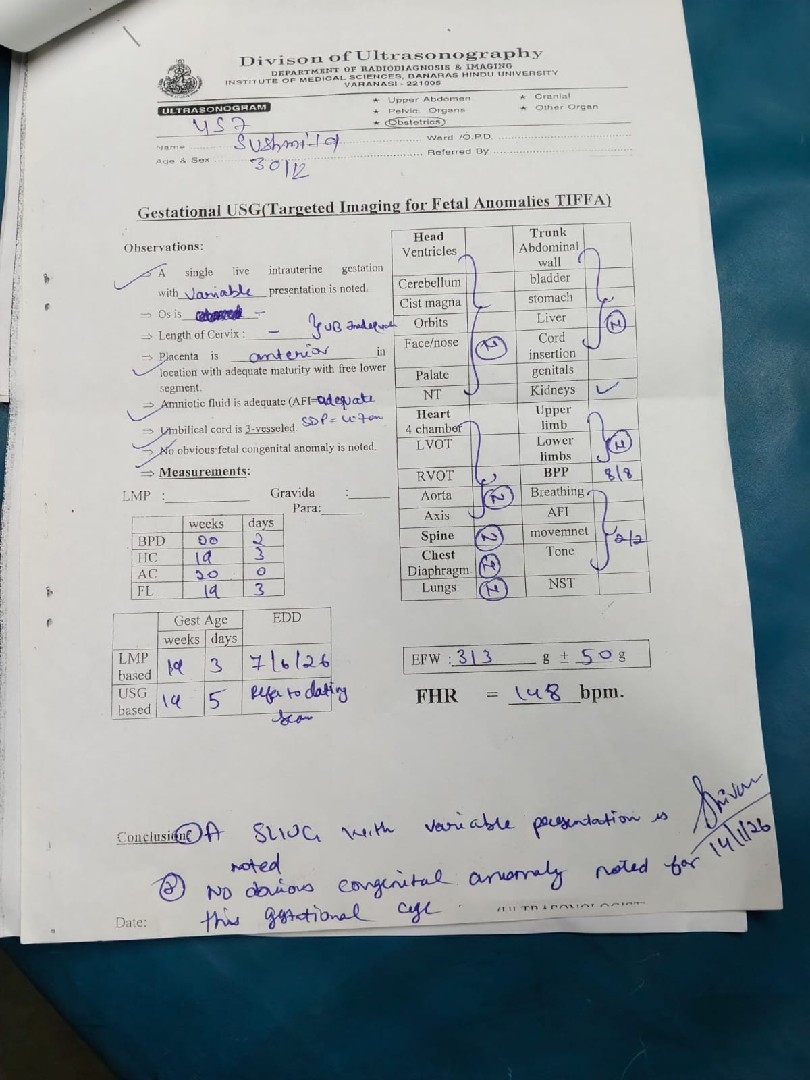 Divison of Ultrasonography
DEPARTMENT OF RADIODIAGNOSIS & IMAGING
INSTITUTE OF MEDICAL SCIENCES, BANARAS HINDU UNIVERSITY
VARANASI - 221005
ULTRASONOGRAM
★ Upper Abdomen ★ Cranial
★ Pelvic Organs ★ Other Organ
★ Obstetrics
457
Name Sushmita Ward /O.P.D.
Age & Sex 30/F Referred By
Gestational USG(Targeted Imaging for Fetal Anomalies TIFFA)
Observations:
⇒ A single live intrauterine gestation
with variable presentation is noted.
⇒ Os is –
⇒ Length of Cervix : – UB
⇒ Placenta is anterior in
location with adequate maturity with free lower
segment.
⇒ Amniotic fluid is adequate (AFI=adequate
⇒ Umbilical cord is 3-vesseled. SDP=
⇒ No obvious fetal congenital anomaly is noted.
⇒ Measurements:
LMP : Gravida :
Para:
weeks days
BPD 2
HC 19 3
AC 20 0
FL 19 3
Gest Age EDD
weeks days
LMP based 19 3 7/6/26
USG based 19 5 Refer to dating scan
Head
Ventricles
Cerebellum
Cist magna
Orbits
Face/nose N
Palate
NT
Heart
4 chamber
LVOT
RVOT
Aorta N
Axis
Spine N
Chest
Diaphragm N
Lungs N
Trunk
Abdominal
wall
bladder
stomach
Liver N
Cord
insertion
genitals
Kidneys ✓
Upper
limb
Lower N
limbs
BPP 8/8
Breathing
AFI
movemnet 2/2
Tone
NST
EFW : 313 g ± 50 g
FHR = 148 bpm.
Conclusion: ① A SLIUG with variable presentation is
noted
② No obvious congenital anomaly noted for
this gestational age
14/1/26
Date: